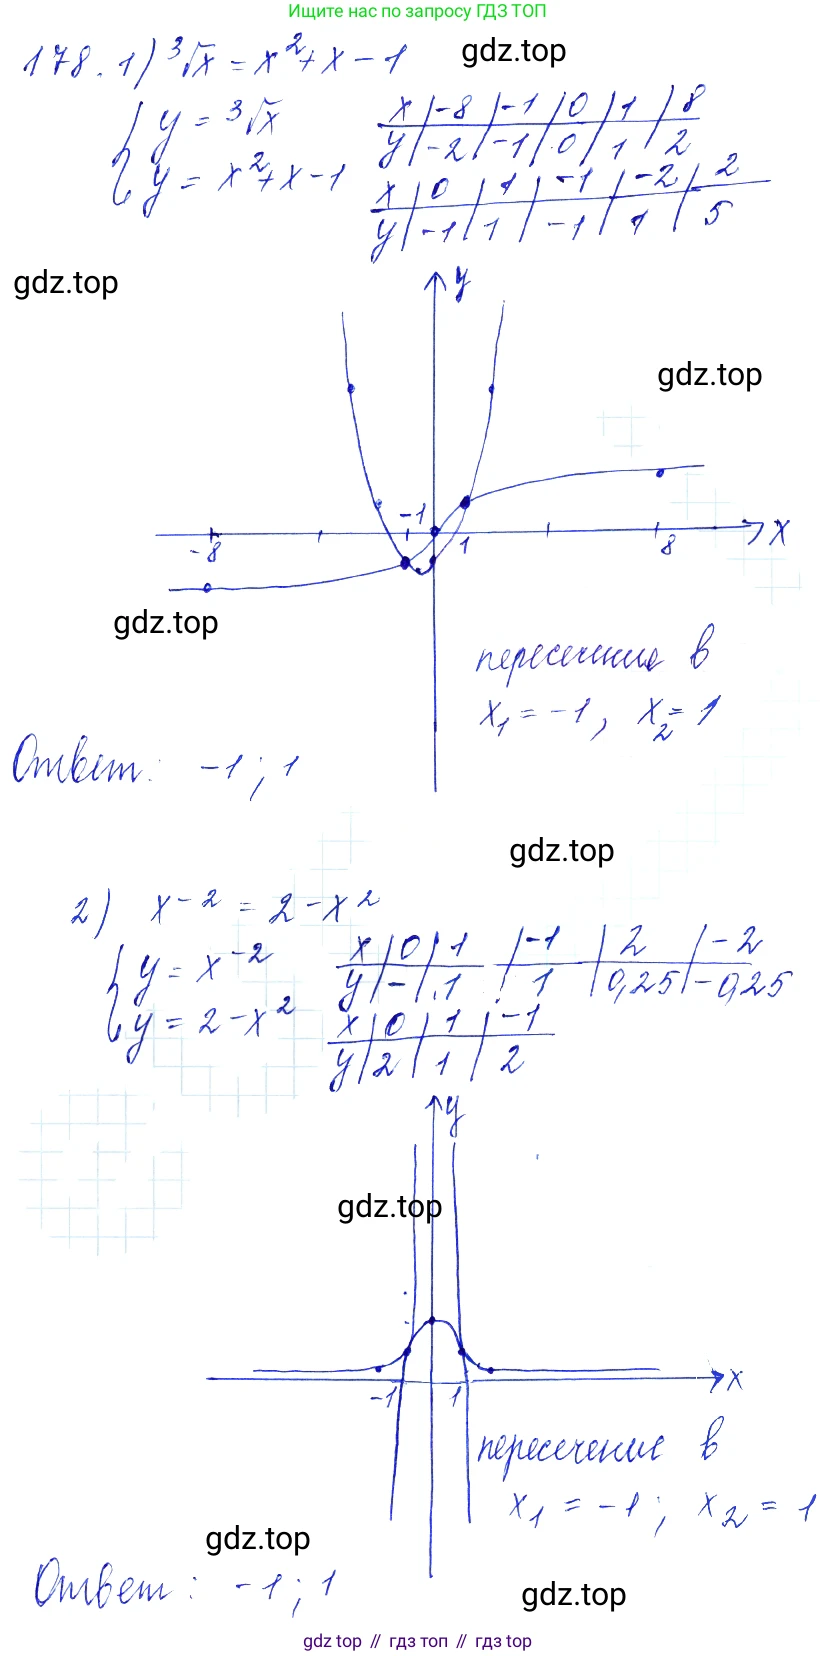 Ищите нас по запросу ГДЗ ТОП
178. 1) ³√x = x² + x - 1
gdz.top
{ y = ³√x
x | -8 | -1 | 0 | 1 | 8
y | -2 | -1 | 0 | 1 | 2
y = x² + x - 1
x | 0 | 1 | -1 | -2 | 2
y | -1 | 1 | -1 | 1 | 5
gdz.top
y
gdz.top
-8 -1 1 8 x
gdz.top
пересечение в
x₁ = -1, x₂ = 1
Ответ: -1; 1
gdz.top
2) x⁻² = 2 - x²
{ y = x⁻²
x | 0 | 1 | -1 | 2 | -2
y | - | 1 | 1 | 0,25 | -0,25
y = 2 - x²
x | 0 | 1 | -1
y | 2 | 1 | 2
y
gdz.top
-1 1 x
пересечение в
x₁ = -1; x₂ = 1
gdz.top
Ответ: -1; 1
gdz.top
gdz top // гдз топ // гдз top